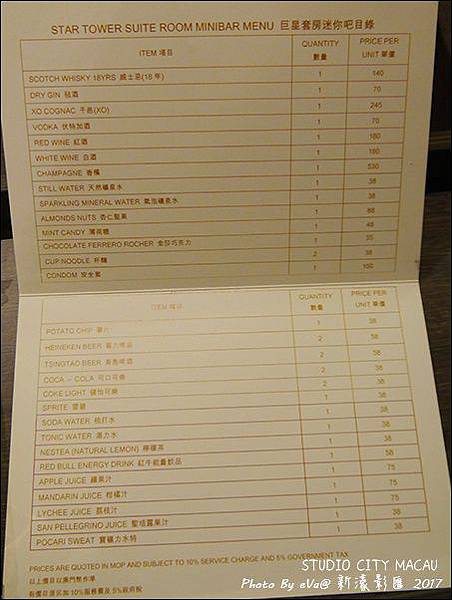 STAR TOWER SUITE ROOM MINIBAR MENU 巨星套房迷你吧目錄
ITEM 項目 QUANTITY 數量 PRICE PER UNIT 單價
SCOTCH WHISKY 18YRS 威士忌(18 年) 1 140
DRY GIN 氈酒 1 70
XO COGNAC 干邑(XO) 1 245
VODKA 伏特加酒 1 70
RED WINE 紅酒 1 180
WHITE WINE 白酒 1 180
CHAMPAGNE 香檳 1 530
STILL WATER 天然礦泉水 1 38
SPARKLING MINERAL WATER 氣泡礦泉水 1 38
ALMONDS NUTS 杏仁堅果 1 88
MINT CANDY 薄荷糖 1 48
CHOCOLATE FERRERO ROCHER 金莎巧克力 1 35
CUP NOODLE 杯麵 2 38
CONDOM 安全套 1 100
ITEM 項目 QUANTITY 數量 PRICE PER UNIT 單價
POTATO CHIP 薯片 1 38
HEINEKEN BEER 喜力啤酒 2 58
TSINGTAO BEER 青島啤酒 2 58
COCA – COLA 可口可樂 2 38
COKE LIGHT 健怡可樂 2 38
SPRITE 雪碧 1 38
SODA WATER 梳打水 1 38
TONIC WATER 湯力水 1 38
NESTEA (NATURAL LEMON) 檸檬茶 1 38
RED BULL ENERGY DRINK 紅牛能量飲品 1 58
APPLE JUICE 蘋果汁 1 75
MANDARIN JUICE 柑橘汁 1 75
LYCHEE JUICE 荔枝汁 1 75
SAN PELLEGRINO JUICE 聖培露果汁 1 38
POCARI SWEAT 寶礦力水特 1 38
PRICES ARE QUOTED IN MOP AND SUBJECT TO 10% SERVICE CHARGE AND 5% GOVERNMENT TAX
以上價目以澳門幣作準
有價目須另加 10%服務費及 5%政府稅
STUDIO CITY MACAU
Photo By eVa@ 新濠影匯 2017